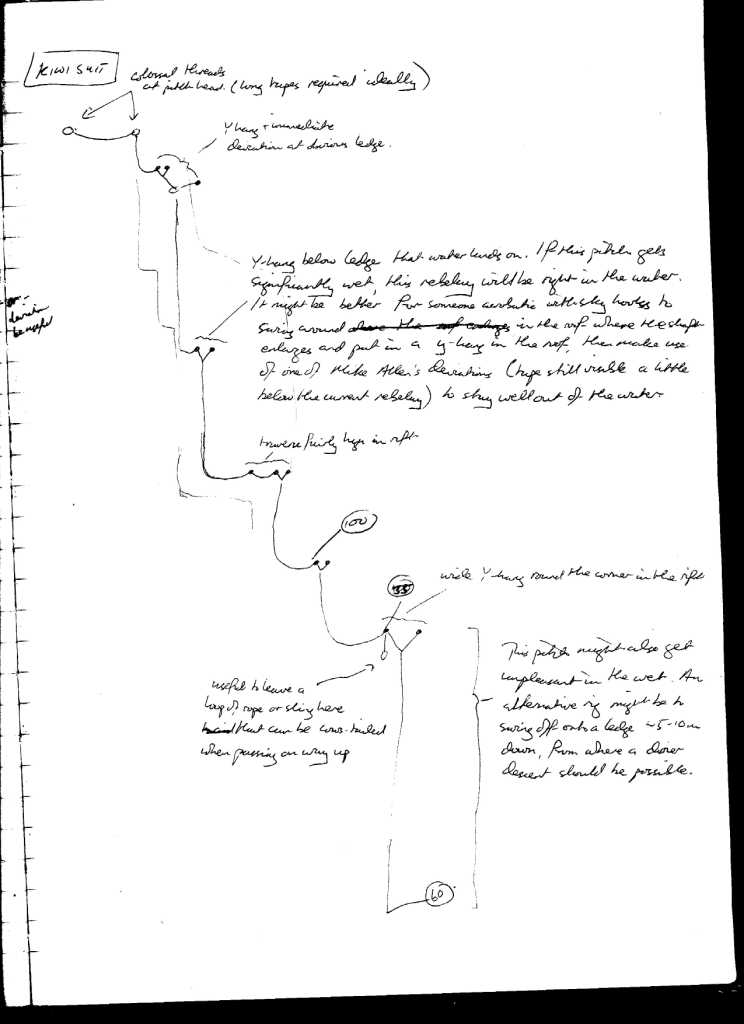 KIWI SUIT
colossal threads
at pitch head. (long tapes required ideally)
Y hang + immediate
deviation at obvious ledge.
Y-hang below ledge that water lands on. If this pitch gets
significantly wet, this rebelay will be right in the water.
It might be better for someone acrobatic with sky hooks to
swing around above the roof enlarges in the roof where the shaft
enlarges and put in a y-hang in the roof, then make use
of one of Mike Allen's deviations (tape still visible a little
below the current rebelay) to stay well out of the water
traverse fairly high in rift
100
wide Y-hang round the corner in the rift
useful to leave a
loop of rope or sling here
that can be cows-tailed
when passing on way up
This pitch might also get
unpleasant in the wet. An
alternative rig might be to
swing off onto a ledge ~5-10m
down, from where a drier
descent should be possible.
60